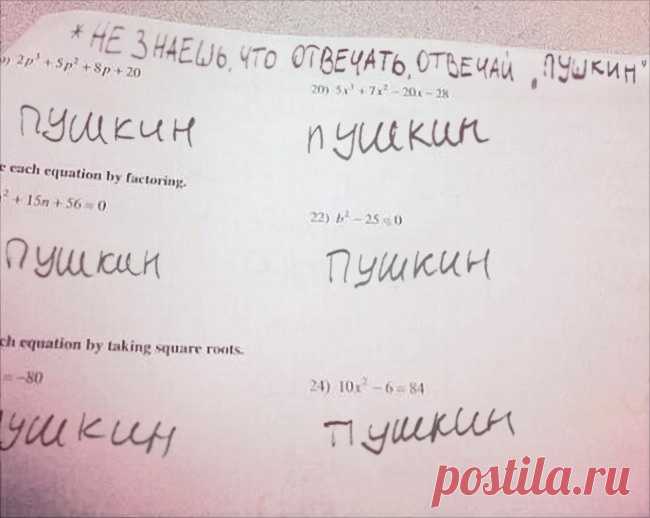 * НЕ ЗНАЕШЬ, ЧТО ОТВЕЧАТЬ, ОТВЕЧАЙ „ПУШКИН"
9) 2p³ + 5p² + 8p + 20
20) 5x³ + 7x² − 20x − 28
ПУШКИН
ПУШКИН
e each equation by factoring.
² + 15n + 56 = 0
22) b² − 25 = 0
ПУШКИН
ПУШКИН
ch equation by taking square roots.
= −80
24) 10x² − 6 = 84
ПУШКИН
ПУШКИН
postila.ru